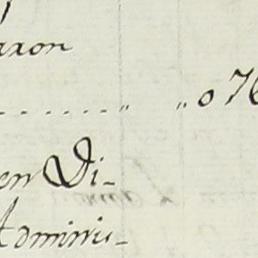 axon
........ " " 0 76
en Di-
Adminis-